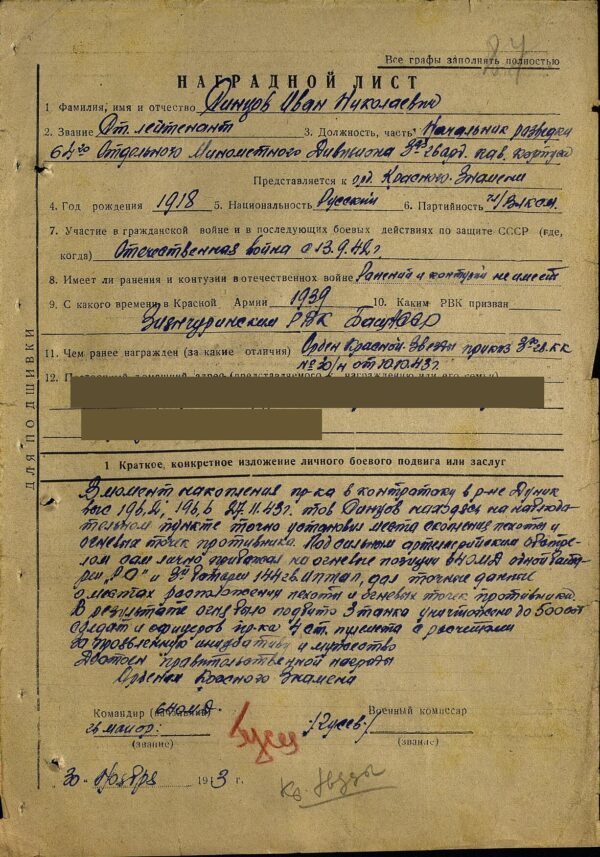 87
Все графы заполнять полностью
НАГРАДНОЙ ЛИСТ
1 Фамилия, имя и отчество Динцов Иван Николаевич
2. Звание Ст. лейтенант 3. Должность, часть Начальник разведки
64го Отдельного Минометного Дивизиона 3го гвард. кав. корпуса
Представляется к орд. Красного Знамени
4. Год рождения 1918 5. Национальность Русский 6. Партийность чл/влксм.
7. Участие в гражданской войне и в последующих боевых действиях по защите СССР (где,
когда) Отечественная война с 13.9.42г
8. Имеет ли ранения и контузии в отечественной войне Ранений и контузий не имеет
9. С какого времени в Красной Армии 1939 10. Каким РВК призван
Зианчуринским РВК БашАССР
11. Чем ранее награжден (за какие отличия) Орден Красной Звезды приказ 3го гв. кк
№ 30/н от 10.10.43г.
12.
ДЛЯ ПОДШИВКИ
1 Краткое, конкретное изложение личного боевого подвига или заслуг
В момент накопления пр-ка в контратаку в р-не Дуник
выс 196,2, 196,6 27.11.43г. тов Динцов находясь на наблюда-
тельном пункте точно установил места скопления пехоты и
огневых точек противника. Под сильным артелерийским обстре-
лом сам лично прибежал на огневые позиции 64ОМД одной бата-
реи и 3й батареи 144 гв иптап, дал точные данные
о местах расположения пехоты и огневых точек противника.
В результате огня было подбито 3 танка уничтожено до 500
солдат и офицеров пр-ка 4 ст. пулемета с расчетами
За проявленную инициативу и мужество
Достоин правительственной награды
Орденом Красного Знамени
Командир 64ОМД. Военный комиссар
гв майор: /Гусев/
(звание) (звание)
30 Ноября 1943 г.
Кр. Звезды